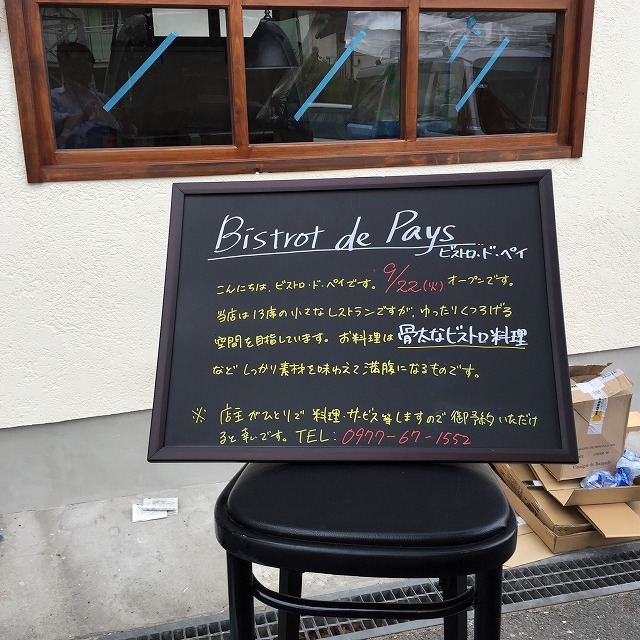 Bistrot de Pays
ビストロ・ド・ペイ
こんにちは、ビストロ・ド・ペイです。9/22(火)オープンです。
当店は13席の小さなレストランですが、ゆったりくつろげる
空間を目指しています。お料理は骨太なビストロ料理
など しっかり素材を味わえて満腹になるものです。
※ 店主がひとりで料理・サービス等しますので御予約いただけ
ると幸いです。TEL: 0977-67-1552